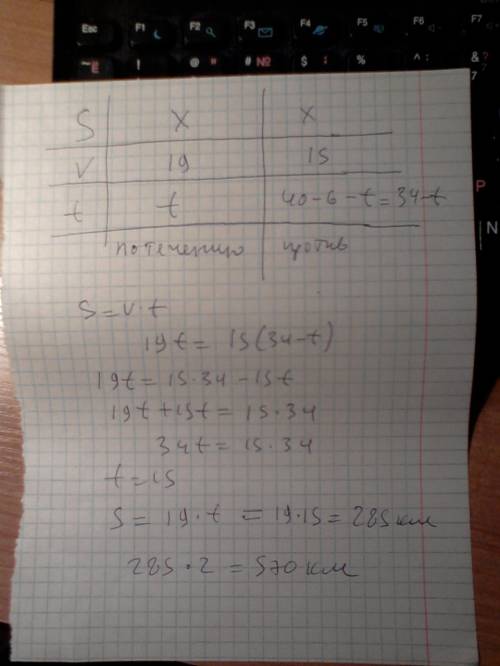 Esc F1 F2 F3 F4 F5 F6 F7
~ Ё ! @ " # № $ ; % ^ : & ?
7
P
N
S X X
V 19 15
t t 40-6-t=34-t
по течению против
S=v·t
19t= 15(34-t)
19t=15·34-15t
19t+15t=15·34
34t=15·34
t=15
S=19·t=19·15=285км
285·2=570км